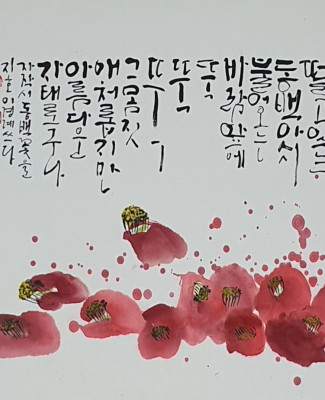 떨고있는
동백아씨
불어오는
바람앞에
뚝
뚝
뚝
그몸짓
애처롭기만
아름다운
자태로구나
자작시 동백꽃을
지호 이경례 쓰다